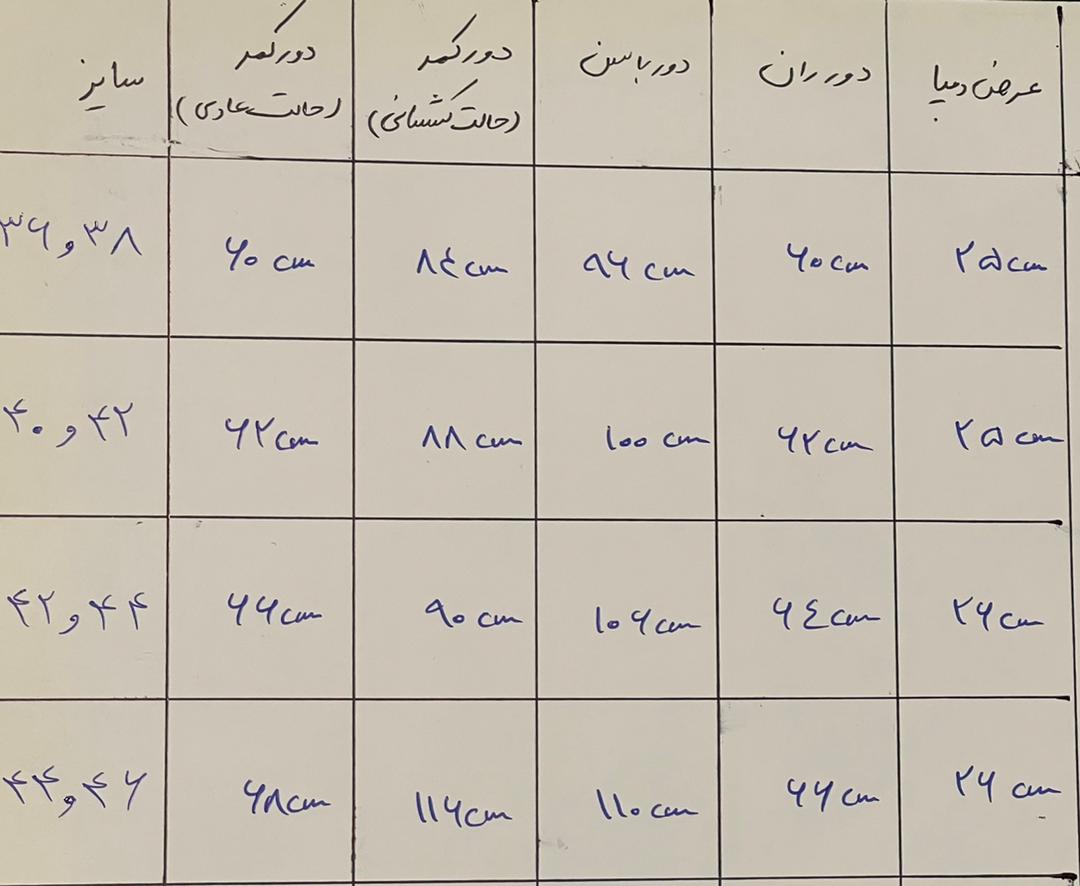 سایز
دور کمر
(حالت عادی)
دور کمر
(حالت کشسانی)
دور باسن
دور ران
عرض دمپا
۳۸ و ۳۶
۶۰ cm
۸۴ cm
۹۶ cm
۶۰ cm
۲۵ cm
۴۲ و ۴۰
۶۲ cm
۸۸ cm
۱۰۰ cm
۶۲ cm
۲۵ cm
۴۴ و ۴۲
۶۶ cm
۹۰ cm
۱۰۶ cm
۶۴ cm
۲۶ cm
۴۶ و ۴۴
۶۸ cm
۱۱۶ cm
۱۱۰ cm
۶۶ cm
۲۶ cm